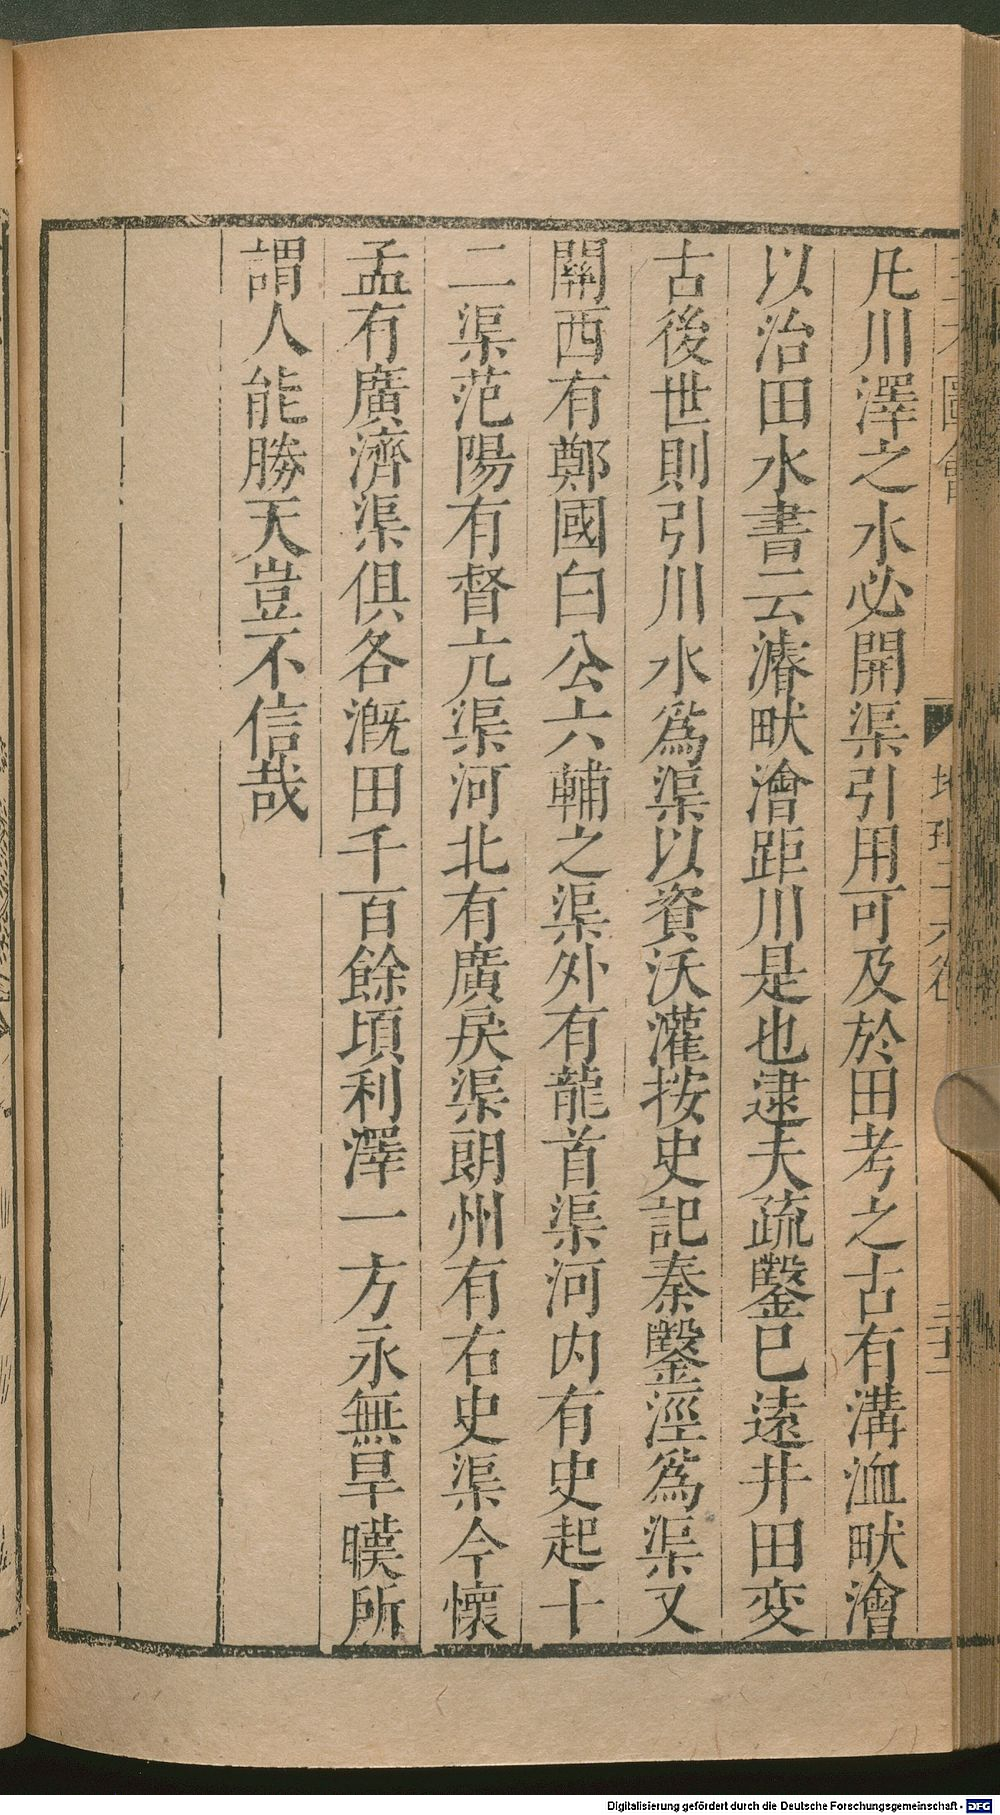 凡川澤之水必開渠引用可及於田考之古有溝洫畎澮
以治田水書云濬畎澮距川是也逮夫疏鑿已遠井田変
古後世則引川水為渠以資沃灌按史記秦鑿涇為渠又
關西有鄭國白公六輔之渠外有龍首渠河内有史起十
二渠范陽有督亢渠河北有廣戾渠朗州有右史渠今懷
孟有廣濟渠俱各溉田千百餘頃利澤一方永無旱暵所
謂人能勝天豈不信哉
Digitalisierung gefördert durch die Deutsche Forschungsgemeinschaft - DFG